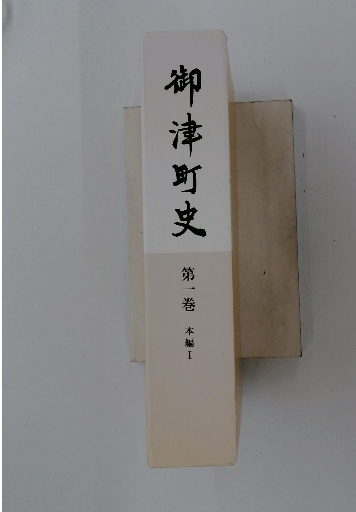 御津町史
第一巻 本編I